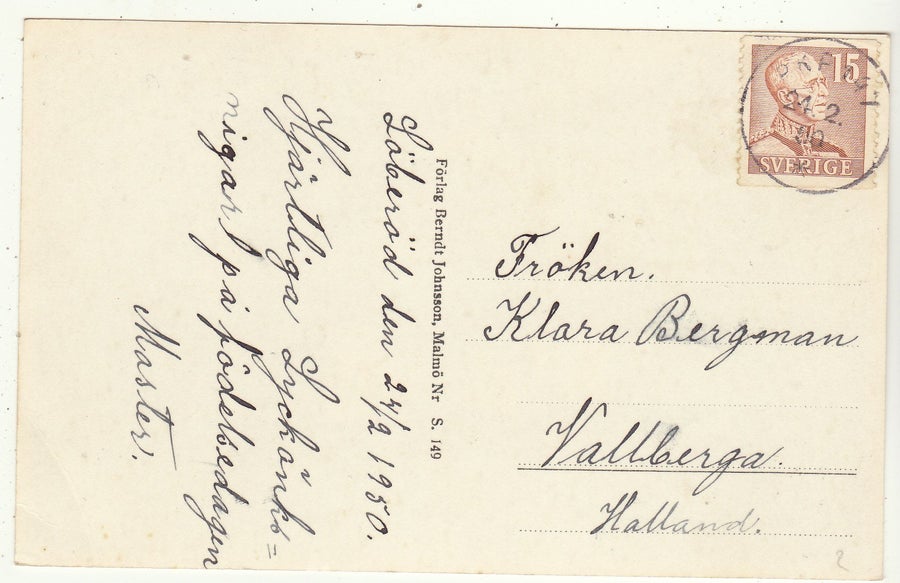 Löberöd den 24/2 1950.
Hjärtliga Lyckönks=
nigar på födelsedagen
Moster.
Förlag Berndt Johnsson, Malmö Nr S. 149
15
24.2.
50
SVERIGE
Fröken.
Klara Bergman
Vallberga.
Halland.
2